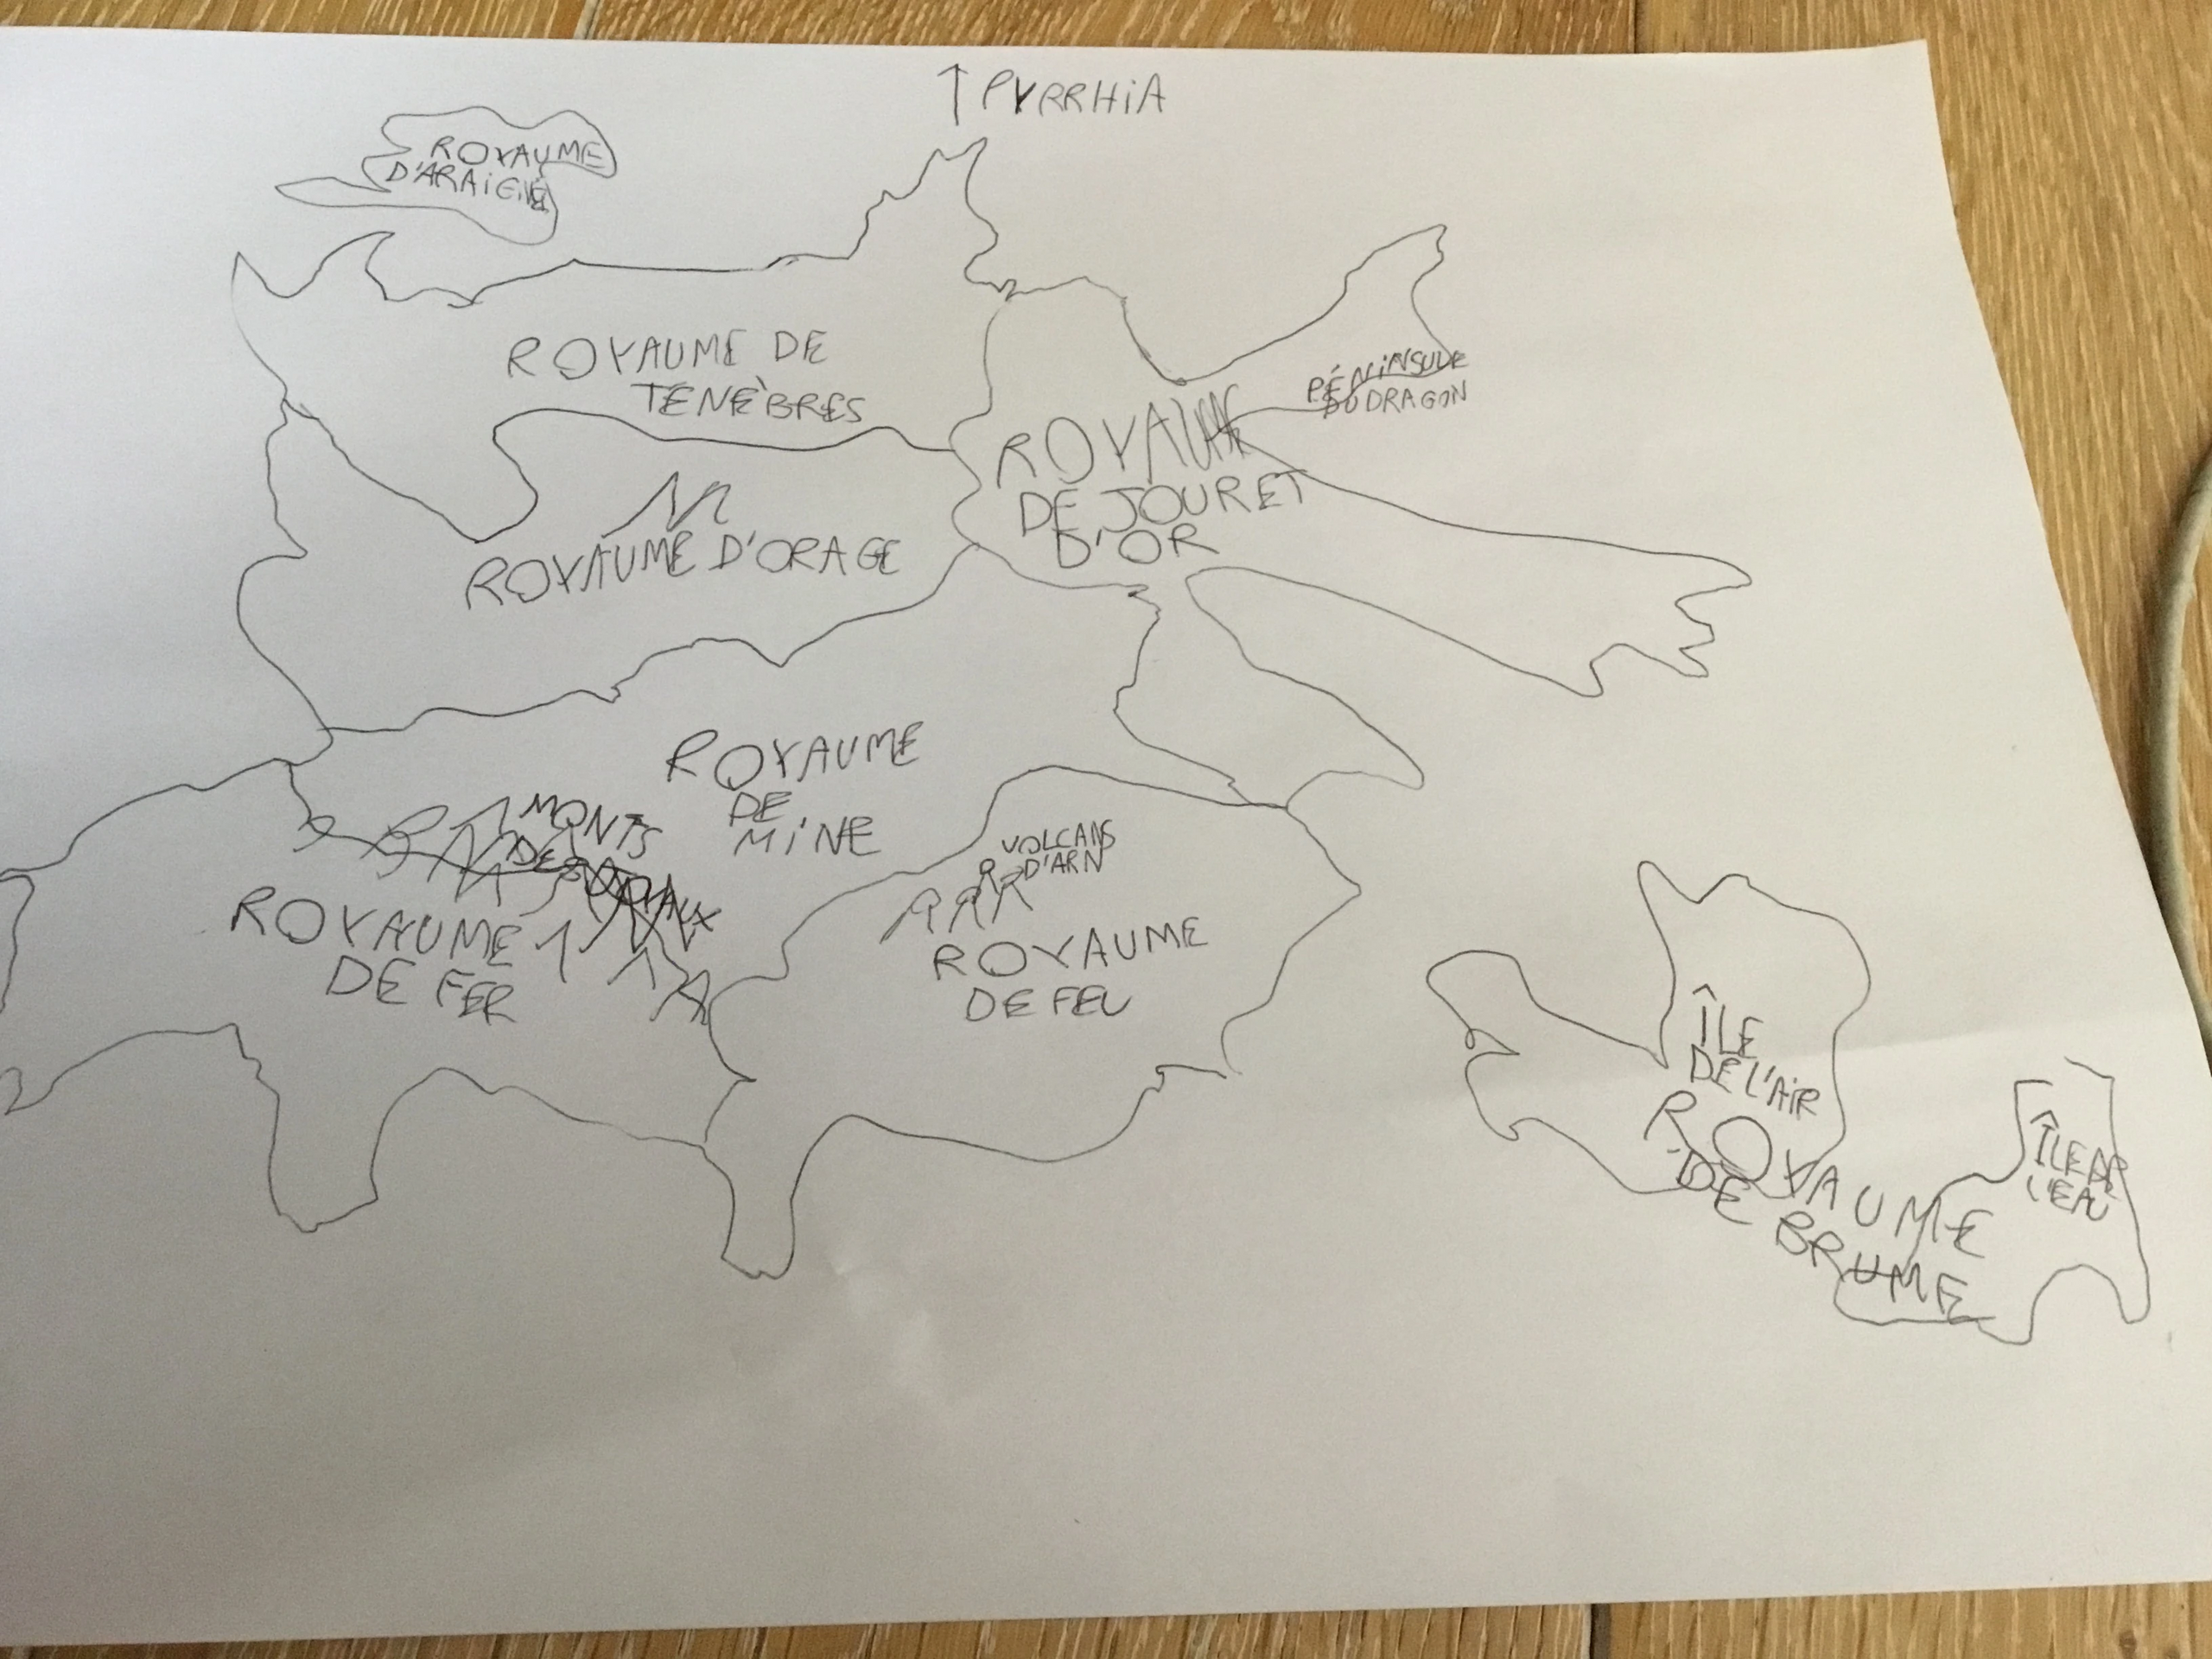 ↑ PYRRHIA
ROYAUME
D'ARAIGNÉ
ROYAUME DE
TENÈBRES
PÉNINSULE
DU DRAGON
ROYAUME
DE JOUR ET
D'OR
ROYAUME D'ORAGE
ROYAUME
DE
MINE
MONTS
VOLCANS
D'ARN
ROYAUME
DE FER
ROYAUME
DE FEU
ÎLE
DE L'AIR
ROYAUME
DE BRUME
ÎLE DE
L'EAU